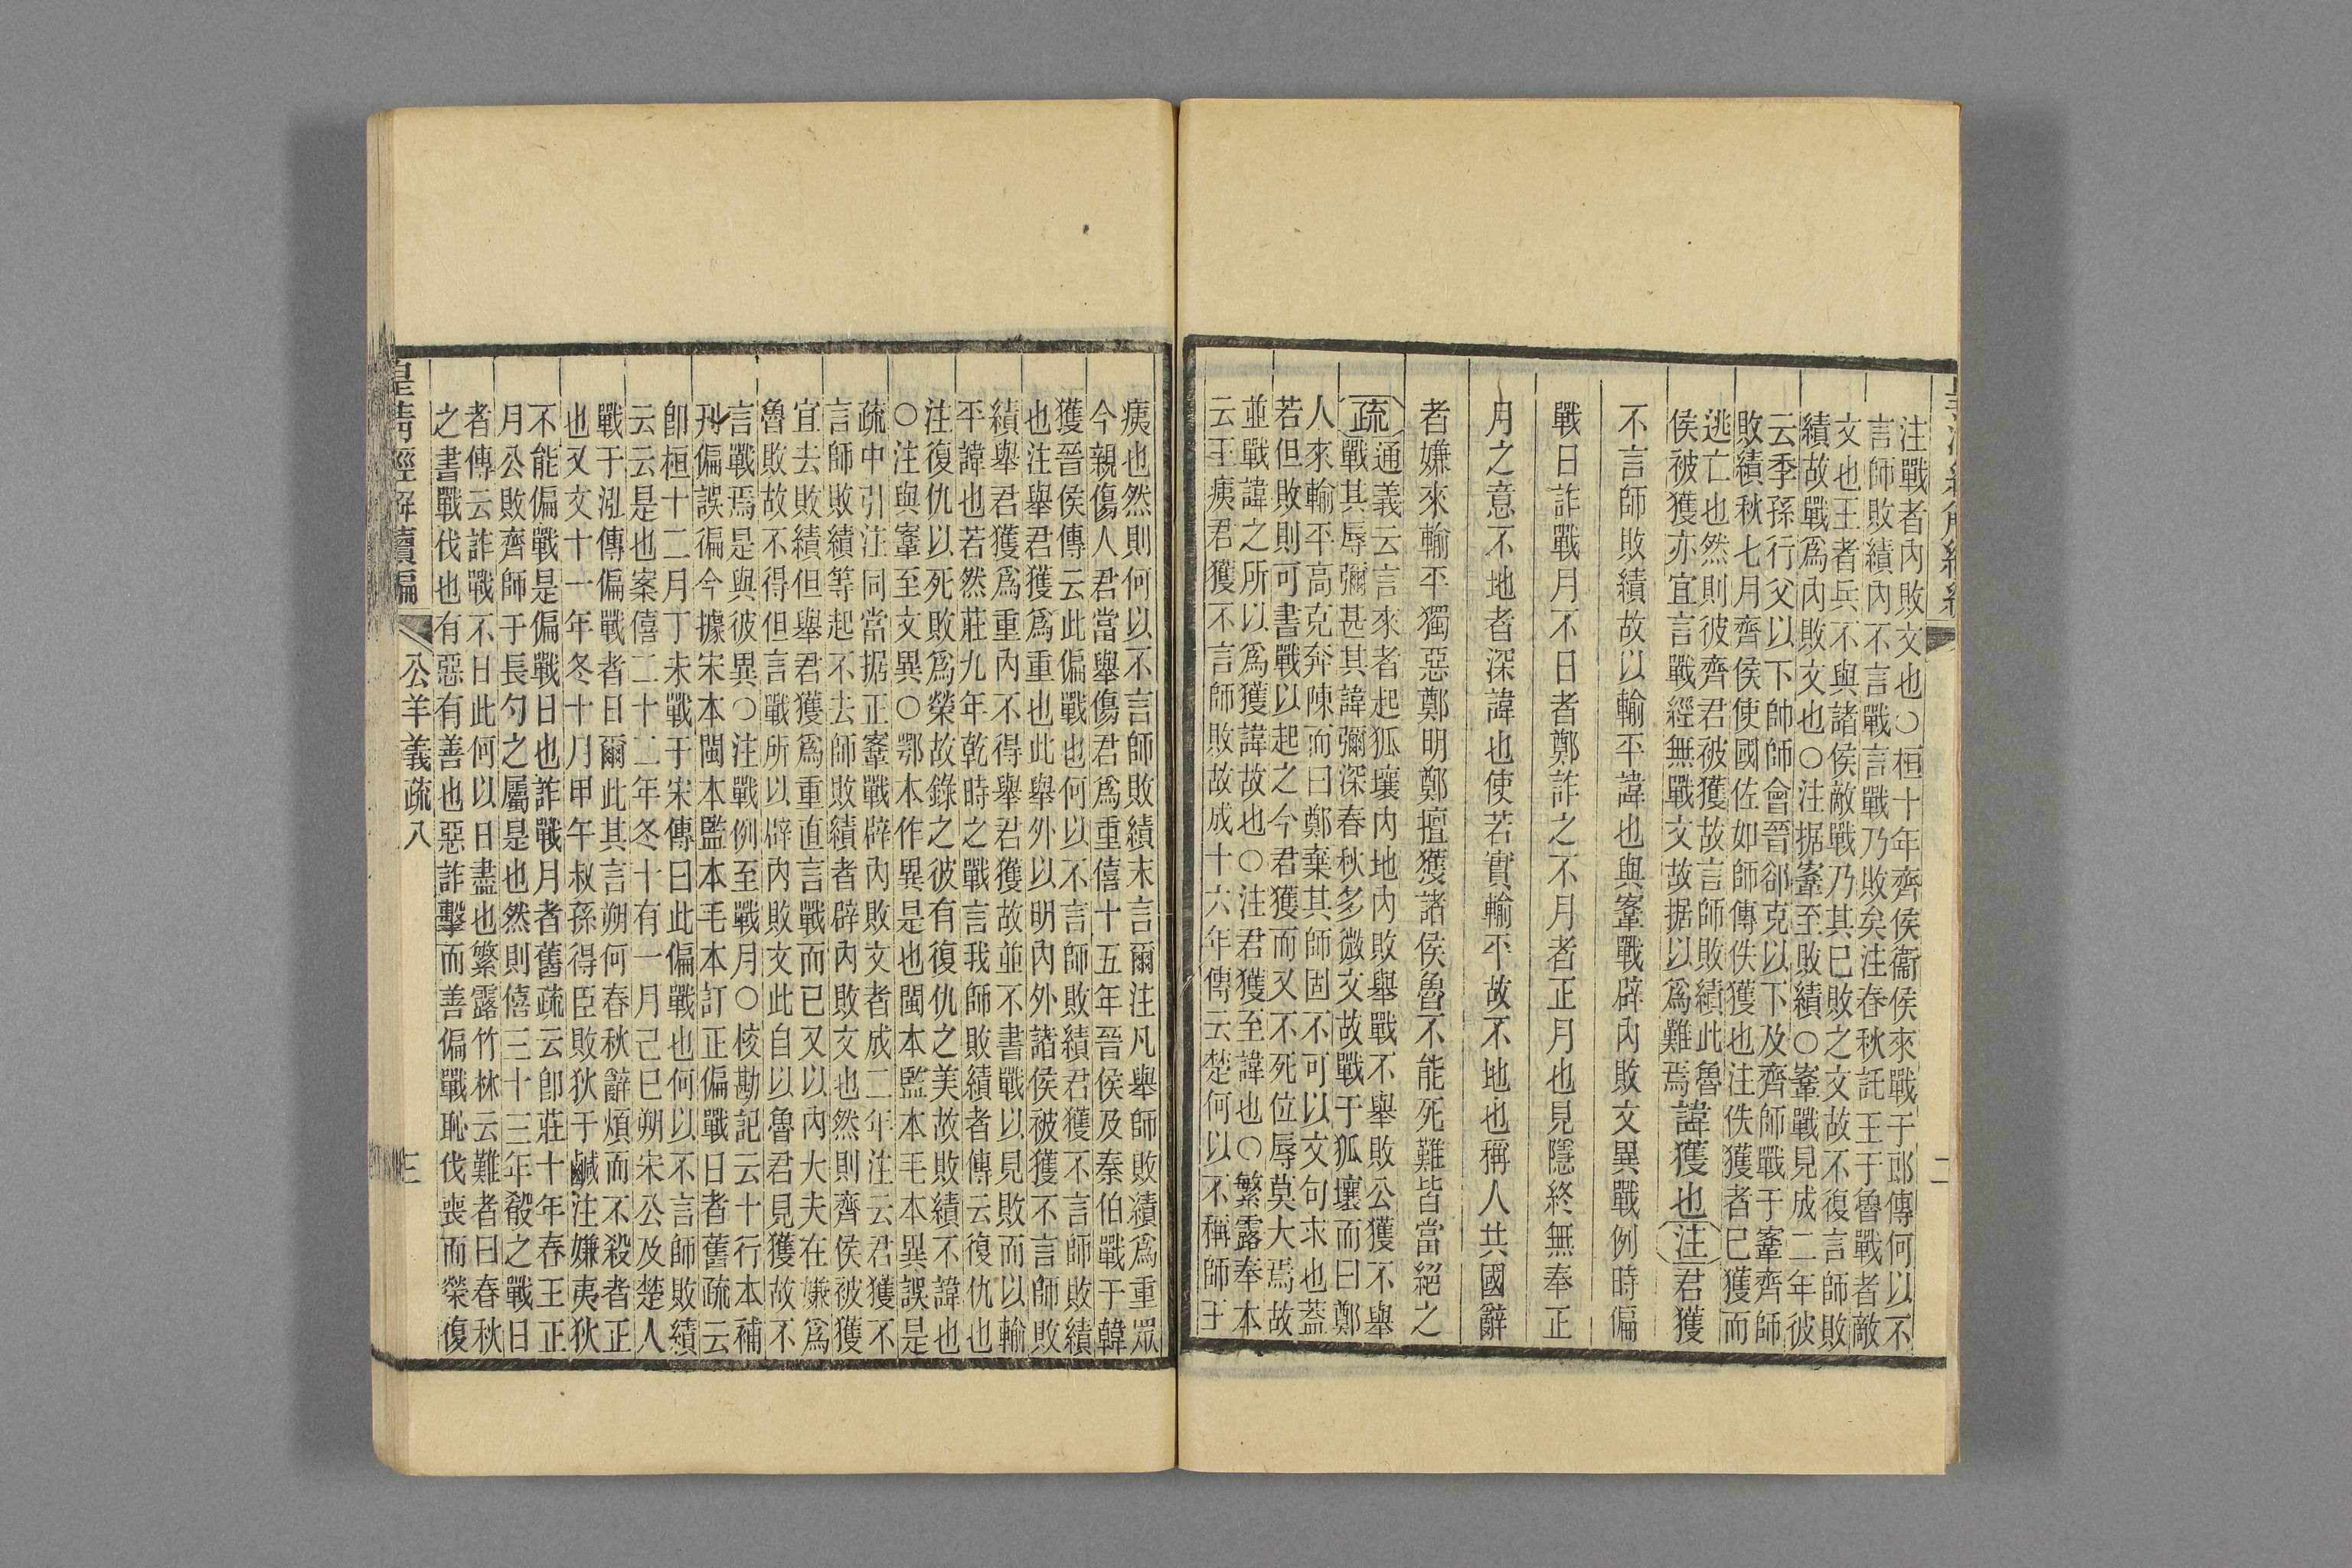 注戰者內敗文也○桓十年齊侯衞侯來戰于郎傳何以不
言師敗績內不言戰言戰乃敗矣注春秋託王于魯戰者敵
文也王者兵不與諸侯敵戰乃其已敗之文故不復言師敗
績故戰爲內敗文也○注据鞌至敗績○鞌戰見成二年彼
云季孫行父以下帥師會晉郤克以下及齊師戰于鞌齊師
敗績秋七月齊侯使國佐如師傳佚獲也注佚獲者已獲而
逃亡也然則彼齊君被獲故言師敗績此魯
侯被獲亦宜言戰經無戰文故据以爲難焉
諱獲也注君獲
不言師敗績故以輸平諱也與鞌戰辟內敗文異戰例時偏
戰日詐戰月不日者鄭詐之不月者正月也見隱終無奉正
月之意不地者深諱也使若實輸平故不地也稱人共國辭
者嫌來輸平獨惡鄭明鄭擅獲諸侯魯不能死難皆當絕之
疏
通義云言來者起狐壤內地內敗舉戰不舉敗公獲不舉
戰其辱彌甚其諱彌深春秋多微文故戰于狐壤而曰鄭
人來輸平高克奔陳而曰鄭棄其師固不可以文句求也蓋
若但敗則可書戰以起之今君獲而又不死位辱莫大焉故
並戰諱之所以爲獲諱故也○注君獲至諱也○繁露奉本
云王痍君獲不言師敗故成十六年傳云楚何以不稱師王
二
痍也然則何以不言師敗績末言爾注凡舉師敗績爲重眾
今親傷人君當舉傷君爲重僖十五年晉侯及秦伯戰于韓
獲晉侯傳云此偏戰也何以不言師敗績君獲不言師敗績
也注舉君獲爲重也此舉外以明內外諸侯被獲不言師敗
績舉君獲爲重內不得舉君獲故並不書戰以見敗而以輸
平諱也若然莊九年乾時之戰言我師敗績者傳云復仇也
注復仇以死敗爲榮故錄之彼有復仇之美故敗績不諱也
○注與鞌至文異○鄂本作異是也閩本監本毛本異誤是
疏中引注同當据正鞌戰辟內敗文者成二年注云君獲不
言師敗績等起不去師敗績者辟內敗文也然則齊侯被獲
宜去敗績但舉君獲爲重直言戰而已又以內大夫在嫌爲
魯敗故不得但言戰所以辟內敗文此自以魯君見獲故不
言戰焉是與彼異○注戰例至戰月○校勘記云十行本補
刋偏誤徧今據宋本閩本監本毛本訂正偏戰日者舊疏云
卽桓十二月丁未戰于宋傳曰此偏戰也何以不言師敗績
云云是也案僖二十二年冬十有一月己巳朔宋公及楚人
戰于泓傳偏戰者日爾此其言朔何春秋辭煩而不殺者正
也又文十一年冬十月甲午叔孫得臣敗狄于鹹注嫌夷狄
不能偏戰是偏戰日也詐戰月者舊疏云卽莊十年春王正
月公敗齊師于長勺之屬是也然則僖三十三年殽之戰日
者傳云詐戰不日此何以日盡也繁露竹林云難者曰春秋
之書戰伐也有惡有善也惡詐擊而善偏戰恥伐喪而榮復
皇淸經解續編
公羊義疏八
三